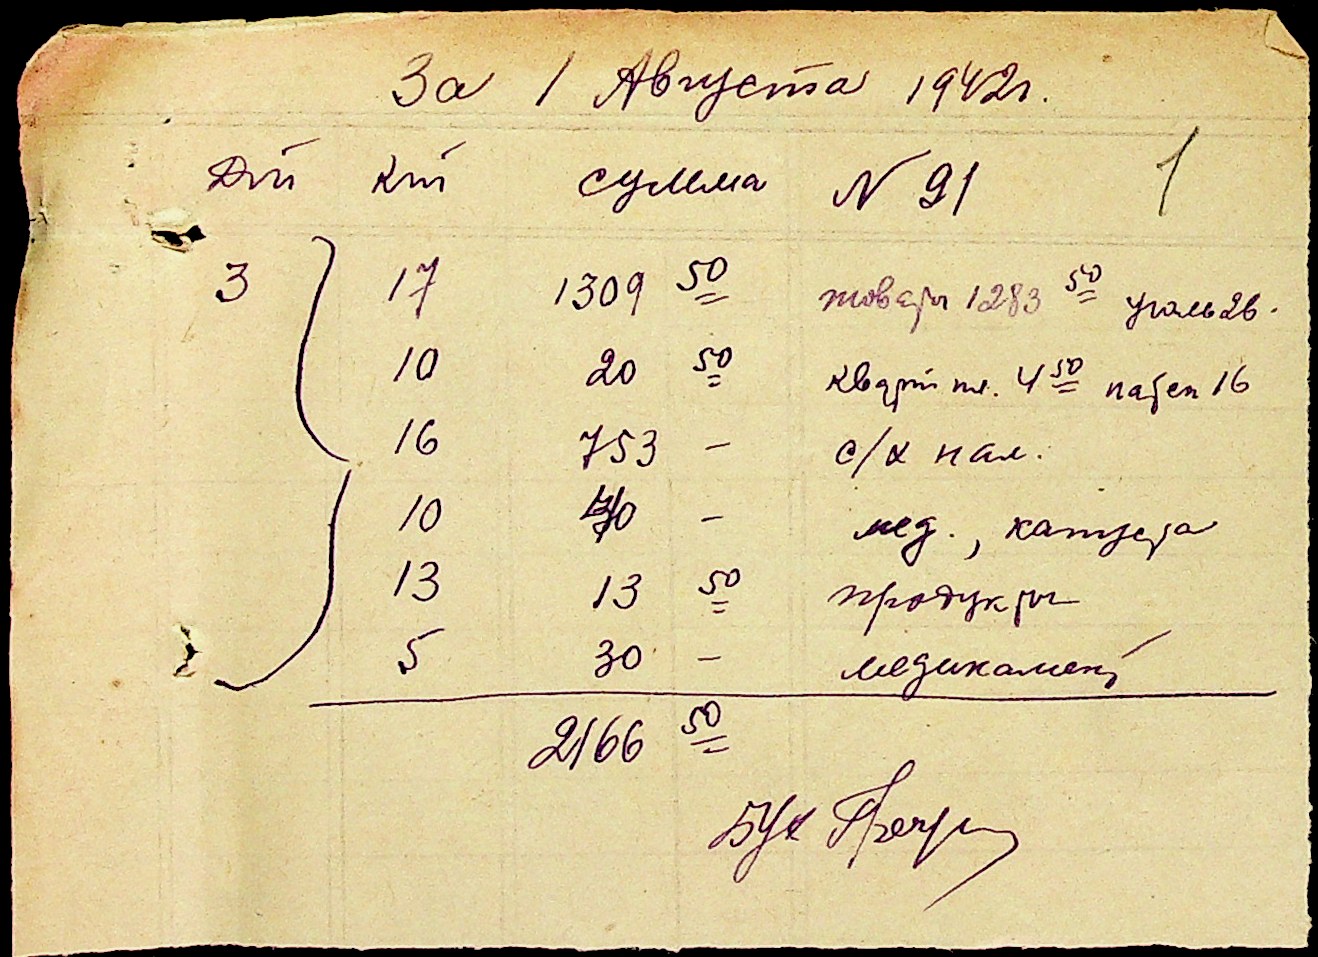 За 1 Августа 1942г.
Дт Кт сумма N 91 1
3 17 1309 50 товары 1283 50 уголь 26.
10 20 50 кварт пл. 4 50 патен 16
16 753 – с/х нал.
10 40 – мед.,
13 13 50 продукты
5 30 – медикамент
2166 50
Бух